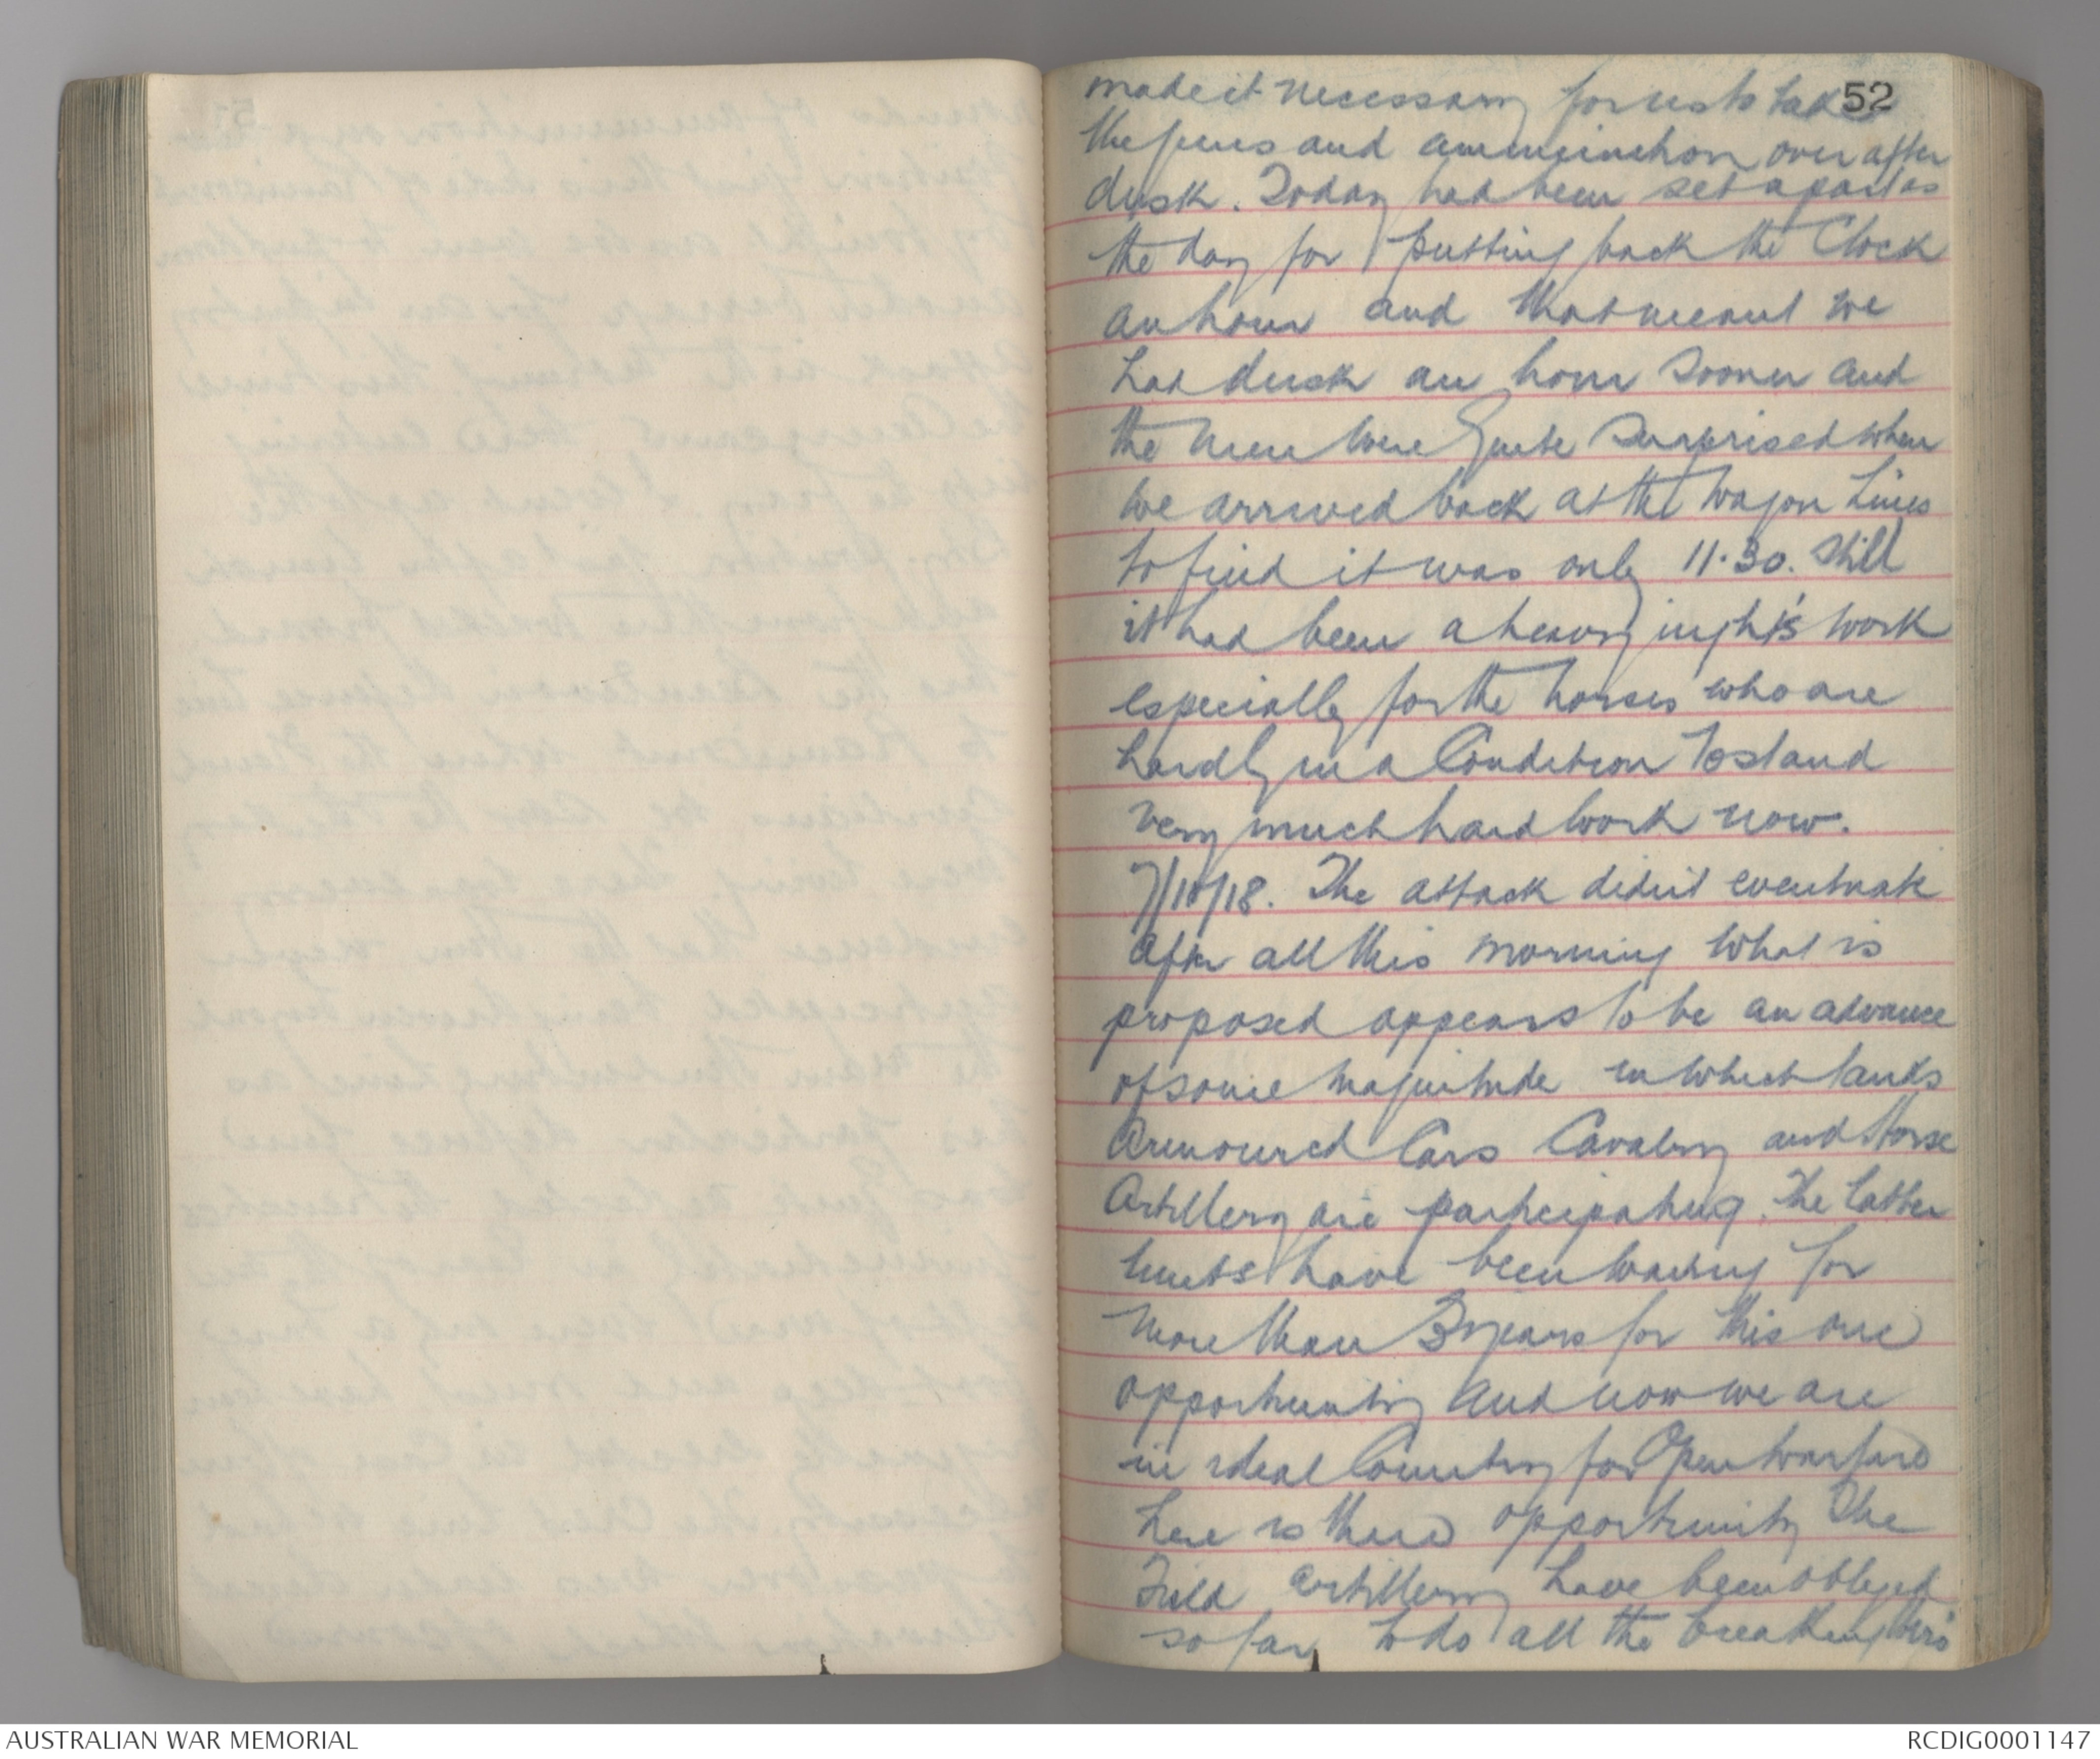 52
made it necessary for us to take
the guns and ammunition over after
dusk. Today had been set apart as
the day for putting back the Clock
an hour and that meant we
had dusk an hour sooner and
the men were Quite Surprised when
we arrived back at the Wagon Lines
to find it was only 11.30. Still
it had been a heavy night's work
especially for the horses who are
hardly in a Condition to stand
very much hard work now.
7/10/18. The attack didn't eventuate
after all this morning What is
proposed appears to be an advance
of some magnitude in which tanks
Armoured Cars Cavalry and Horse
Artillery are participating. The latter
units have been waiting for
more than 3 years for this one
opportunity and now we are
in ideal Country for Open Warfare
here is there opportunity The
Field Artillery have been obliged
so far to do all the breaking
AUSTRALIAN WAR MEMORIAL
RCDIG0001147